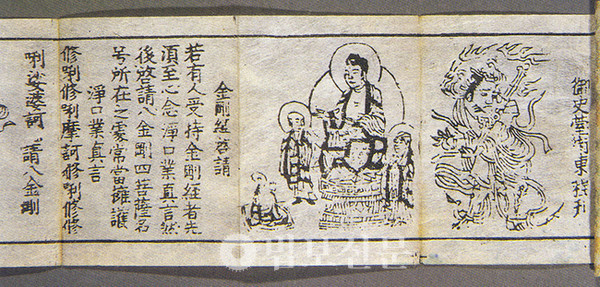 金剛經啓請
若有人受持金剛經者先
須至心念淨口業真言然
後啓請八金剛四菩薩名
号所在之處常當擁護
淨口業真言
修唎修唎摩訶修唎修修
唎娑婆訶 請八金剛
법보신문